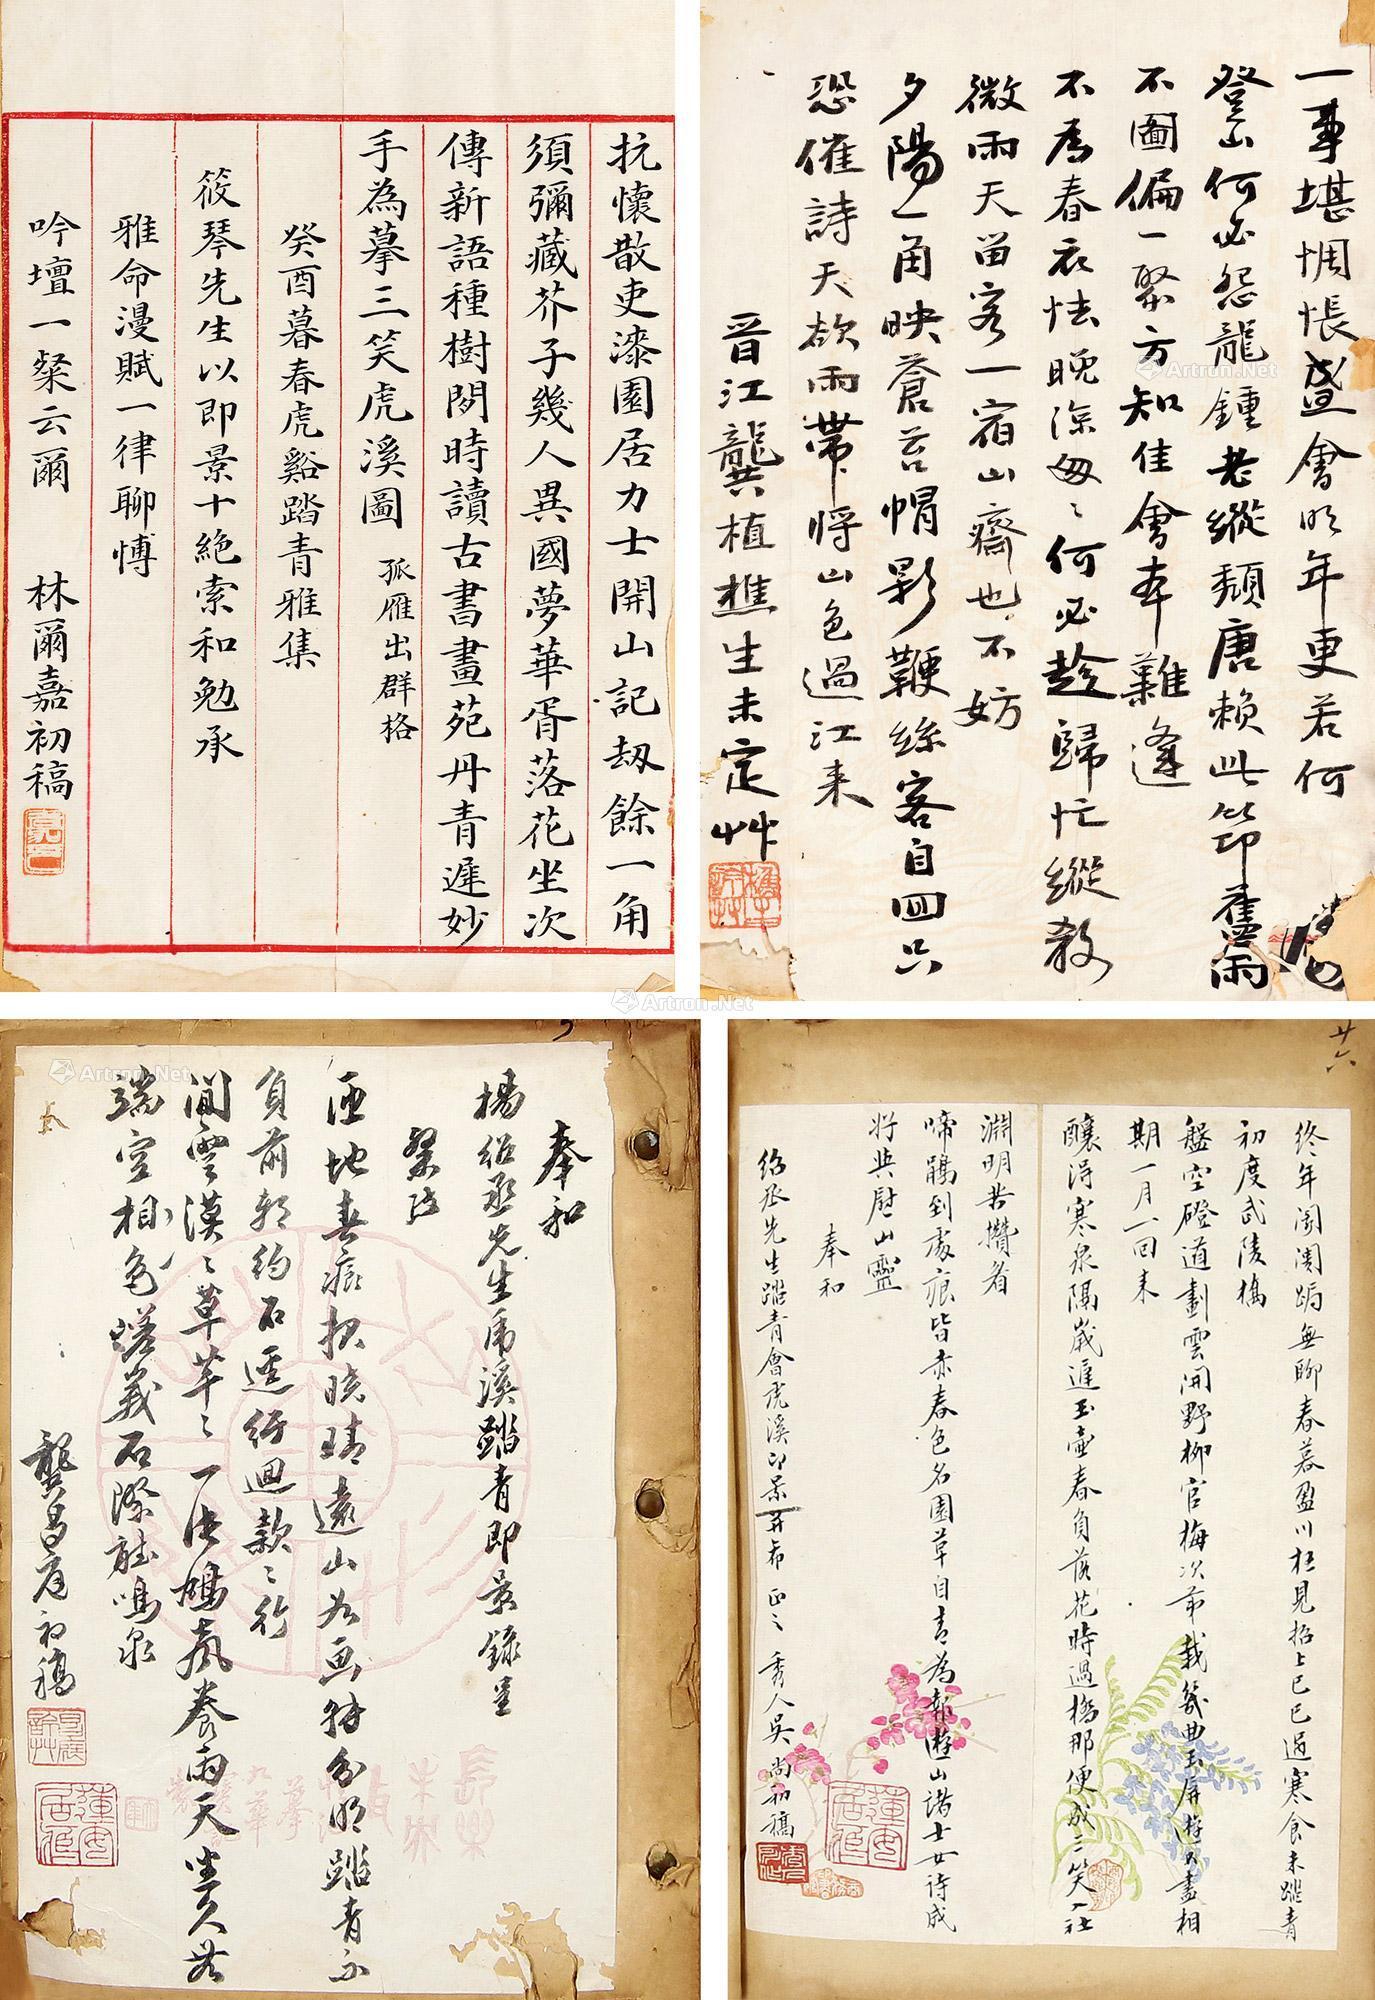 抗懷散吏漆園居力士開山記劫餘一角
須彌藏芥子幾人異國夢華胥落花坐次
傳新語種樹閒時讀古書畫苑丹青遲妙
手為摹三笑虎溪圖 孤雁出群格
癸酉暮春虎谿踏青雅集
筱琴先生以即景十絕索和勉承
雅命漫賦一律聊博
吟壇一粲云爾 林爾嘉初稿
一事堪惆悵盛會明年更若何
登山何必怨龍鍾老縱頹唐賴此筇舊雨
不圖偏一聚方知佳會本難逢
不為春衣怯晚涼匆匆何必趁歸忙縱教
微雨天留客一宿山齋也不妨
夕陽一角映蒼苔帽影鞭絲客自回只
恐催詩天欲雨帶將山色過江來
晉江龔植樵生未定艸
奉和
楊紹丞先生虎溪踏青即景錄呈
粲政
匝地春痕報曉晴遠山如畫特分明踏青不
負前朝約石逕行迴款款行
閒雲漠漠草芊芊一陣鳩風養雨天
端空相色石際聽鳴泉
龔昌庭初稿
廿六
終年闤闠跼無聊春暮盈川柱見招上巳已過寒食未踏青
初度武陵橋
盤空磴道劃雲開野柳官梅次第栽幾曲玉屏遊不盡相
期一月一回來
釀得寒泉隔歲遲玉壺春負落花時過橋那便成三笑社
淵明共攢眉
啼鵑到處痕皆赤春色名園草自青為報遊山諸士女詩成
將與慰山靈
奉和
紹丞先生踏青會虎溪即景并希正之 秀人吳尚初稿
Artron.Net
Artron.Net
Artron.Net